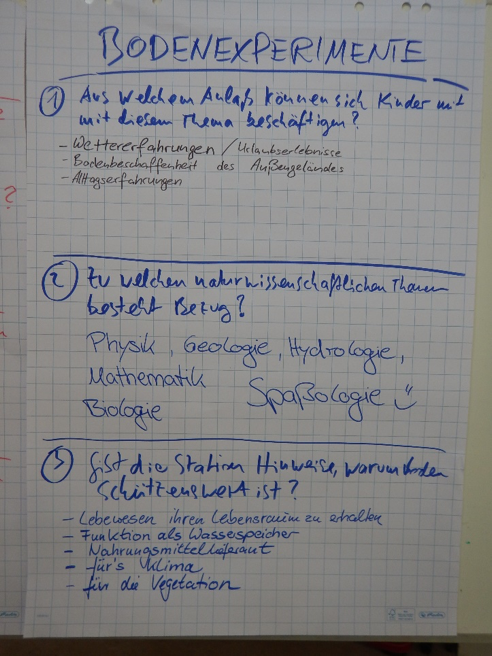 BODENEXPERIMENTE
① Aus welchem Anlaß können sich Kinder mit
mit diesem Thema beschäftigen?
- Wettererfahrungen / Urlaubserlebnisse
- Bodenbeschaffenheit des Außengeländes
- Alltagserfahrungen
② Zu welchen naturwissenschaftlichen Themen
besteht Bezug?
Physik, Geologie, Hydrologie,
Mathematik
Spaßologie
Biologie
③ Gibt die Station Hinweise, warum Boden
schützenswert ist?
- Lebewesen ihren Lebensraum zu erhalten
- Funktion als Wasserspeicher
- Nahrungsmittellieferant
- für's Klima
- für die Vegetation
?